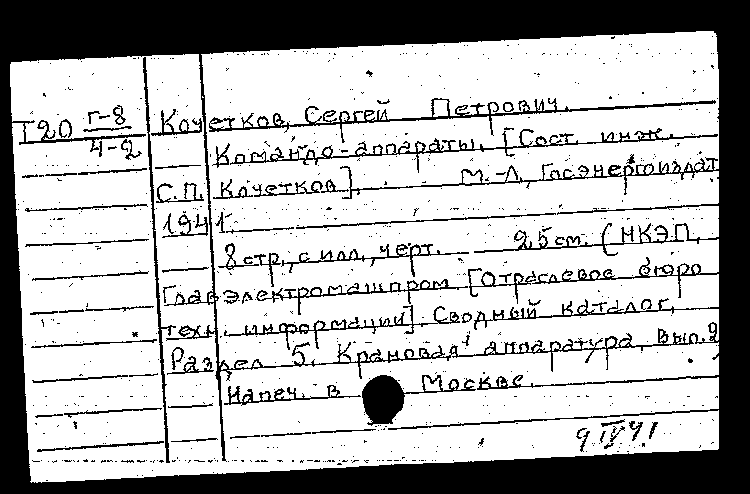 Г20 Г-8
Ч-2
Кочетков, Сергей Петрович.
Командо-аппараты. [Сост. инж.
С.П. Кочетков]. М.-Л., Госэнергоиздат
1941г.
8 стр., с илл., черт. 25 см. (НКЭП,
Главэлектромашпром [Отраслевое бюро
техн. информации]. Сводный каталог,
Раздел 5. Крановая аппаратура, вып. 2
Напеч. в Москве.
9 IV 41